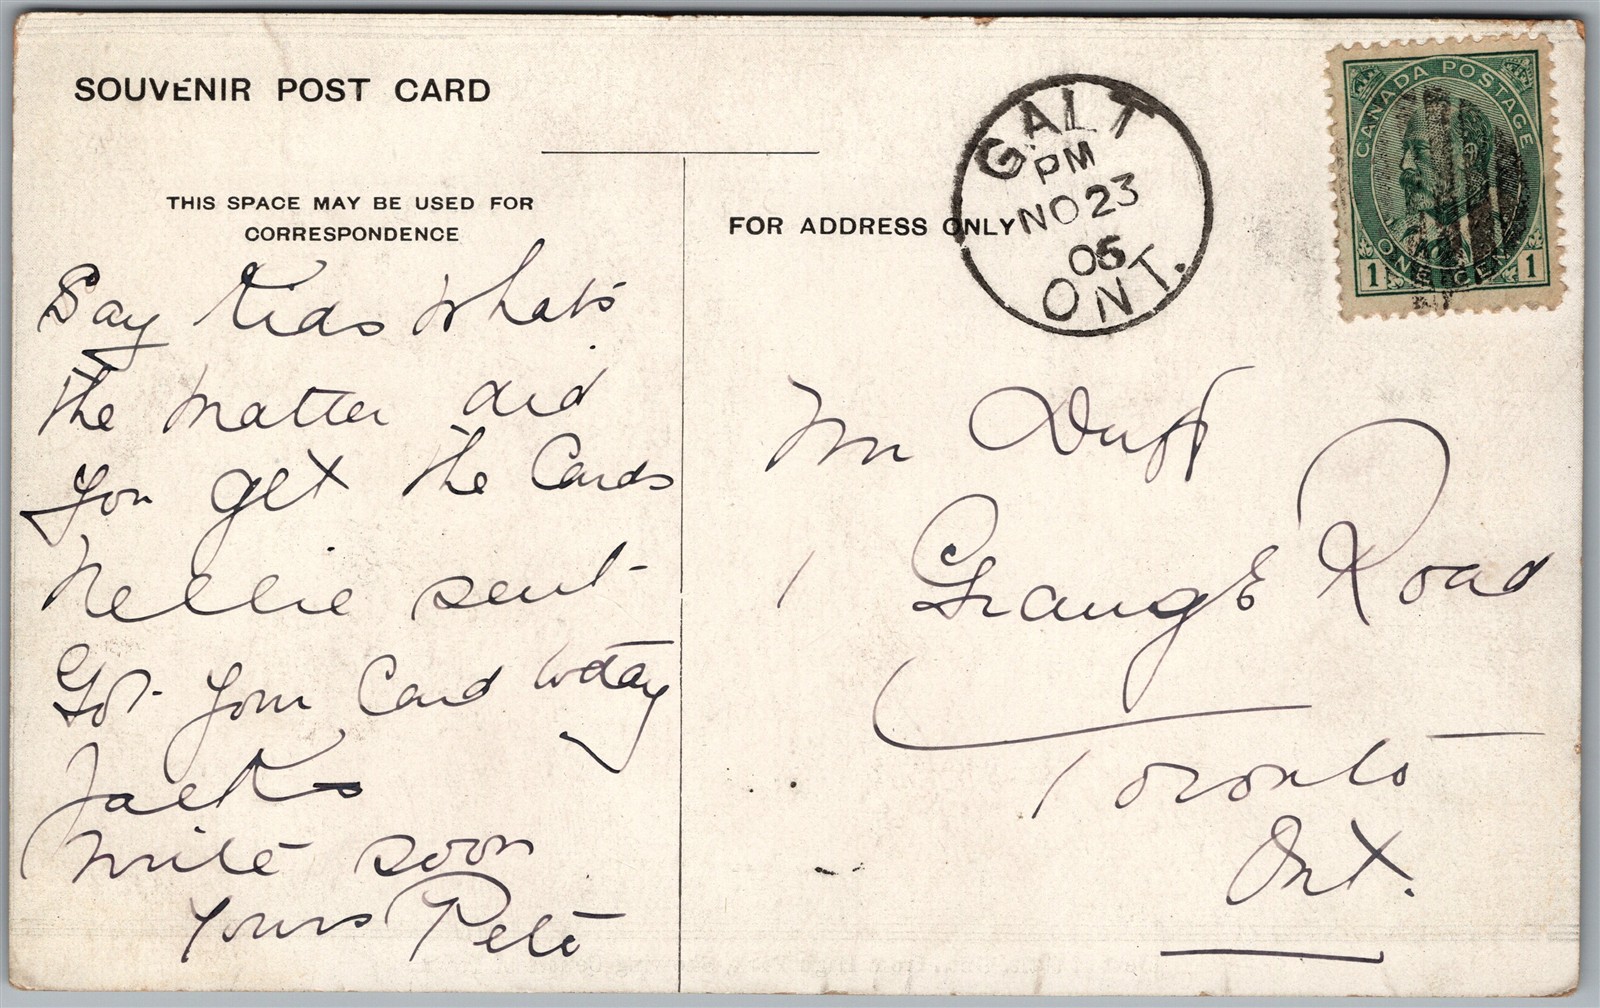 SOUVENIR POST CARD
THIS SPACE MAY BE USED FOR
CORRESPONDENCE
Say Kids Whats
the matter did
you get the Cards
Nellie sent
Got your Card today
Jacks
write soon
Yours Pete
FOR ADDRESS ONLY
GALT
PM
NO 23
05
ONT.
CANADA POSTAGE
ONE CENT
1 1
Mr Duff
1 Grange Road
Toronto
Ont.